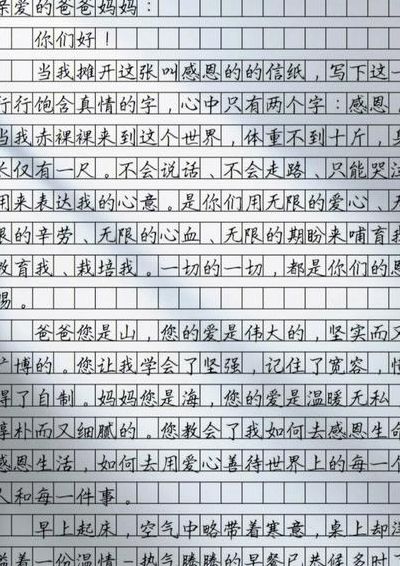 亲爱的爸爸妈妈：
你们好！
当我摊开这张叫感恩的的信纸，写下这一
行行饱含真情的字，心中只有两个字：感恩
当我赤裸裸来到这个世界，体重不到十斤，身
长仅有一尺。不会说话、不会走路、只能哭泣
用来表达我的心意。是你们用无限的爱心、无
限的辛劳、无限的心血、无限的期盼来哺育我
教育我、栽培我。一切的一切，都是你们的恩
赐。
爸爸您是山，您的爱是伟大的，坚实而又
广博的。您让我学会了坚强，记住了宽容，懂
得了自制。妈妈您是海，您的爱是温暖无私
淳朴而又细腻的。您教会了我如何去感恩生命
感恩生活，如何去用爱心善待世界上的每一个
人和每一件事。
早上起床，空气中略带着寒意，桌上却洋
溢着一份温情－热气腾腾的早餐已恭候多时了